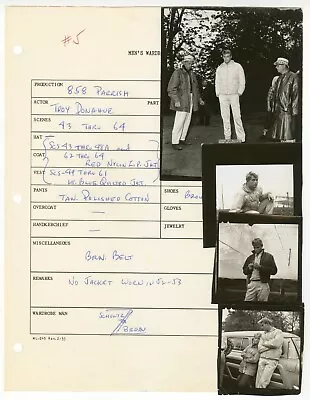 #5
MEN'S WARDR
PRODUCTION 858 PARRISH
ACTOR TROY DONAHUE PART
SCENES 43 THRU 64
HAT SCS-43 THRU 48A AND
COAT 62 THRU 64
RED NYLON Z.P. JKT.
VEST SCS-49 THRU 61
LT. BLUE QUILTED JKT.
PANTS TAN POLISHED COTTON SHOES BROW
OVERCOAT — GLOVES
HANDKERCHIEF — JEWELRY
MISCELLANEOUS
BRWN. BELT
REMARKS NO JACKET WORN IN 52-53
WARDROBE MAN
BROWN